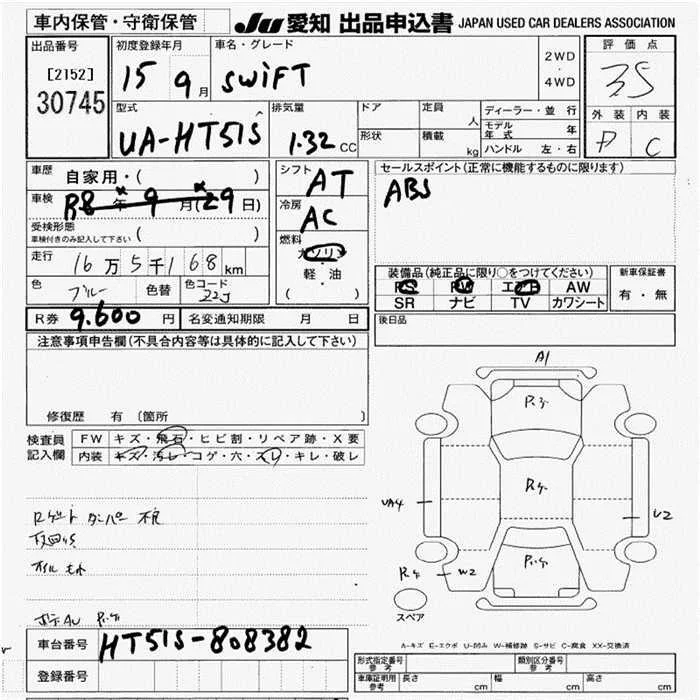 車内保管・守衛保管
JU 愛知 出品申込書 JAPAN USED CAR DEALERS ASSOCIATION
出品番号
[2152]
30745
初度登録年月
15 9月
車名・グレード
SWIFT
2WD
・
4WD
評価点
3.5
外装 内装
C
型式
UA-HT51S
排気量
1.32 CC
ドア
形状
定員 人
積載 kg
ディーラー・並行
モデル年式 年
ハンドル 左・右
車歴 自家用・( )
車検 R8年 9月(29日)
受検形態
車検付きのみ記入して下さい ( )
走行 16万5千168km
色 ブルー 色替 色コード Z2J
シフト AT
冷房 AC
燃料
ガソリン
・
軽・油
( )
セールスポイント(正常に機能するものに限ります)
ABS
装備品(純正品に限り○をつけてください)
PS PW エアB AW
SR ナビ TV カワシート
新車保証書
有・無
R券 9.600円 名変通知期限 月 日
後日品
注意事項申告欄(不具合内容等は具体的に記入して下さい)
修復歴 有 〔箇所 〕
検査員記入欄
FW キズ・飛石・ヒビ割・リペア跡・X要
内装 キズ・汚レ・コゲ・穴・スレ・キレ・破レ
A1
UA4
U2
W2
スペア
A-キズ E-エクボ U-凹み W-補修跡 S-サビ C-腐食 XX-交換済
車台番号 HT51S-808382
登録番号
形式指定番号 参考
類別区分番号 参考
車庫証明用 参考 長さ cm 幅 cm 高さ cm